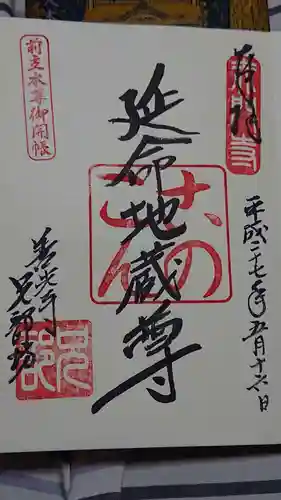 奉拝
平成二七年五月十六日
延命地蔵尊
前立本尊御開帳
善光寺
兄部坊
兄部